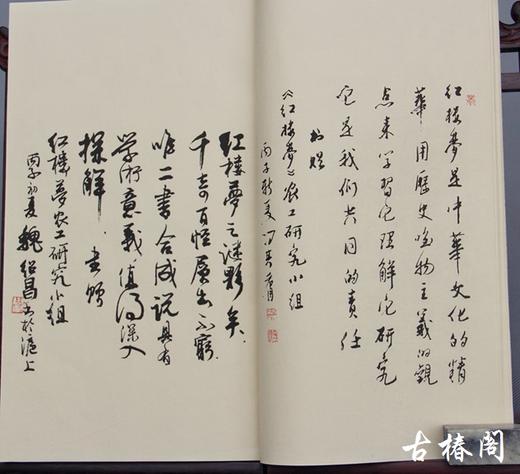 红楼梦是中华文化的精
华用历史唯物主义的观
点来学习它理解它研究
它是我们共同的责任
书赠
《红楼梦》农工研究小组
丙子秋夏冯其庸
红楼梦之谜夥矣
千奇百怪层出不穷
唯二书合成说具有
学术意义值得深入
探解 书赠
红楼梦农工研究小组
丙子初夏魏绍昌书于沪上
古椿阁